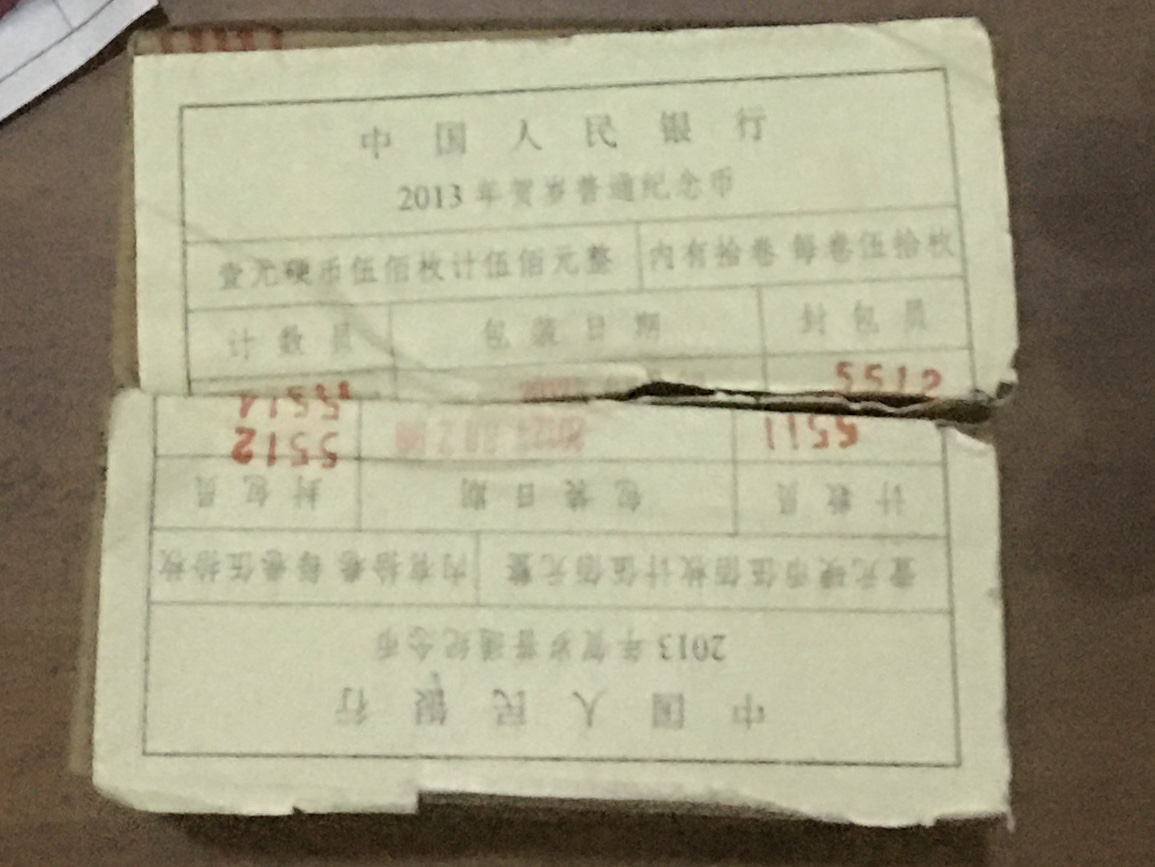 中国人民银行
2013年贺岁普通纪念币
壹元硬币伍佰枚计伍佰元整 内有拾卷 每卷伍拾枚
计数员 包装日期 封包员
5514 5512
5512 5511
封包员 包装日期 计数员
壹元硬币伍佰枚计伍佰元整 内有拾卷 每卷伍拾枚
2013年贺岁普通纪念币
中国人民银行